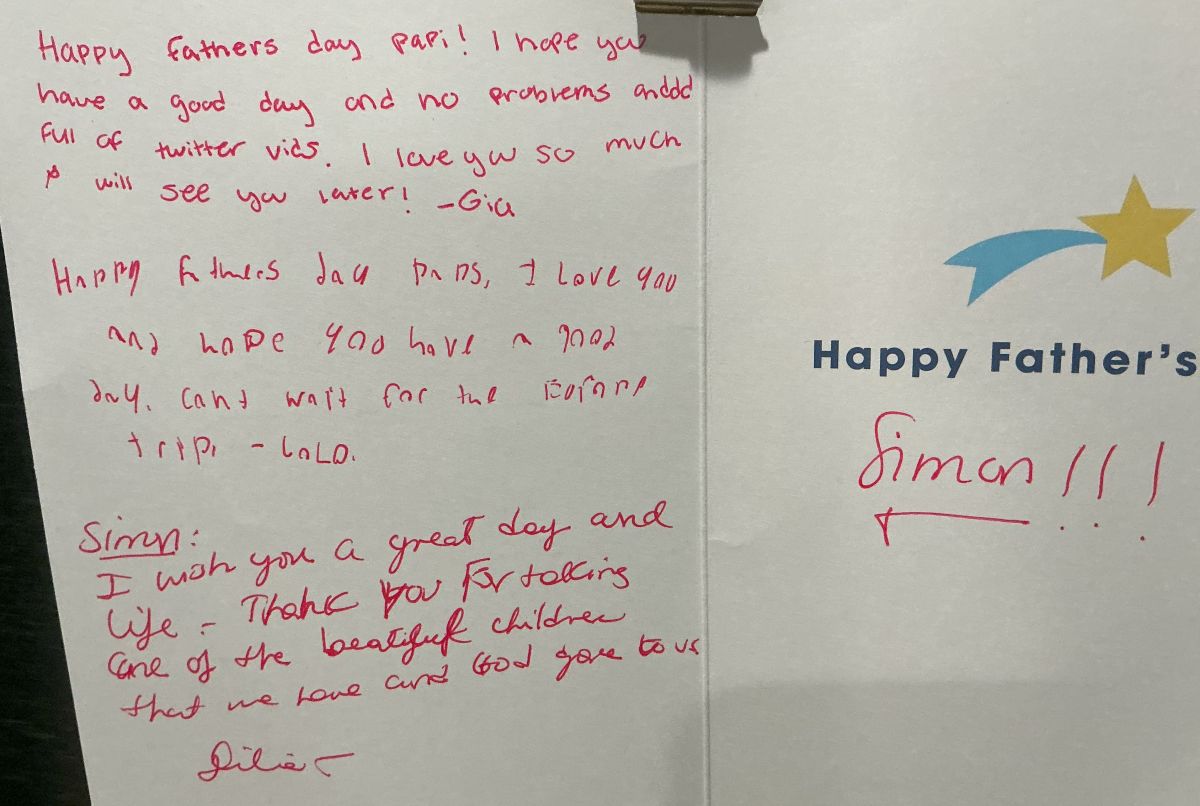 Happy fathers day papi! I hope you
have a good day and no problems anddd
full of twitter vids. I love you so much
& will see you later! -Gia
Happy fathers day paps, I love you
and hope you have a good
day. Cant wait for the Europe
trip. - LOLO.
Simon:
I wish you a great day and
life - Thank you For taking
care of the beatifull children
that we have and God gave to us
Happy Father's
Simon!!!